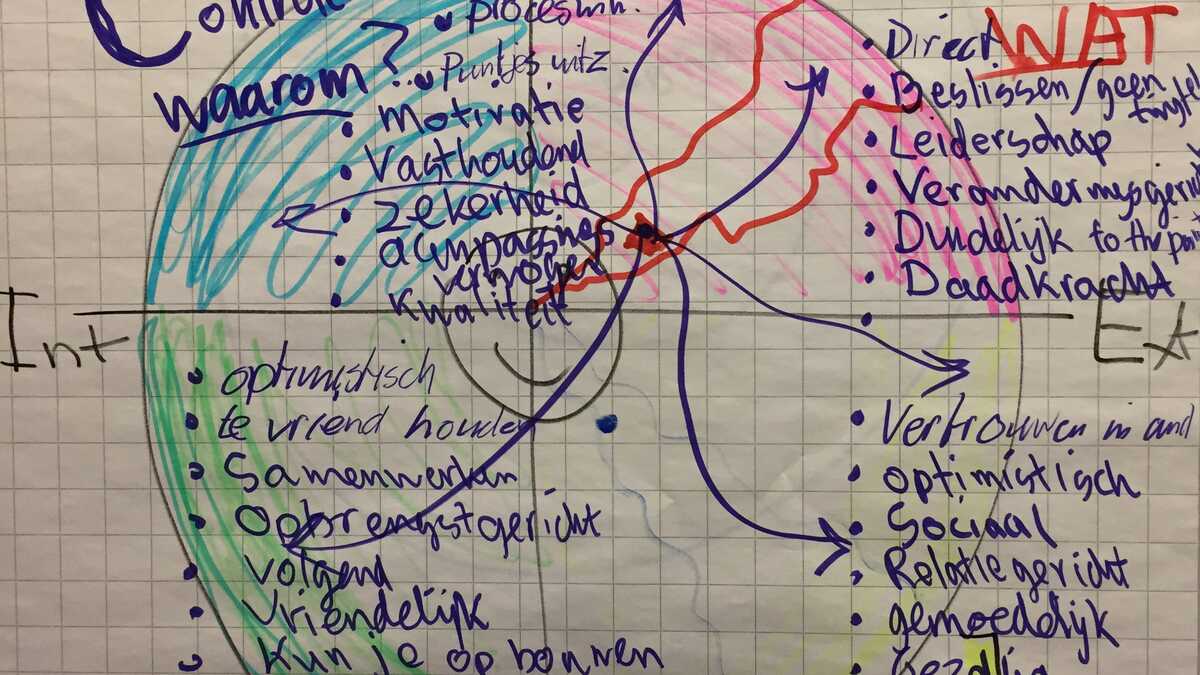 Controle
procesmn.
waarom?
Puntjes uitz.
motivatie
Vasthoudend
zekerheid
verhogen
kwaliteit
WAT
Direct
Beslissen/geen
Leiderschap
Duidelijk to the poin
Daadkracht
Int
Ext
optimistisch
te vriend houden
Samenwerken
Opbrengstgericht
volgend
Vriendelijk
Kun je op bouwen
Vertrouwen in and
optimistisch
Sociaal
Relatiegericht
gemoedelijk
Gezellig